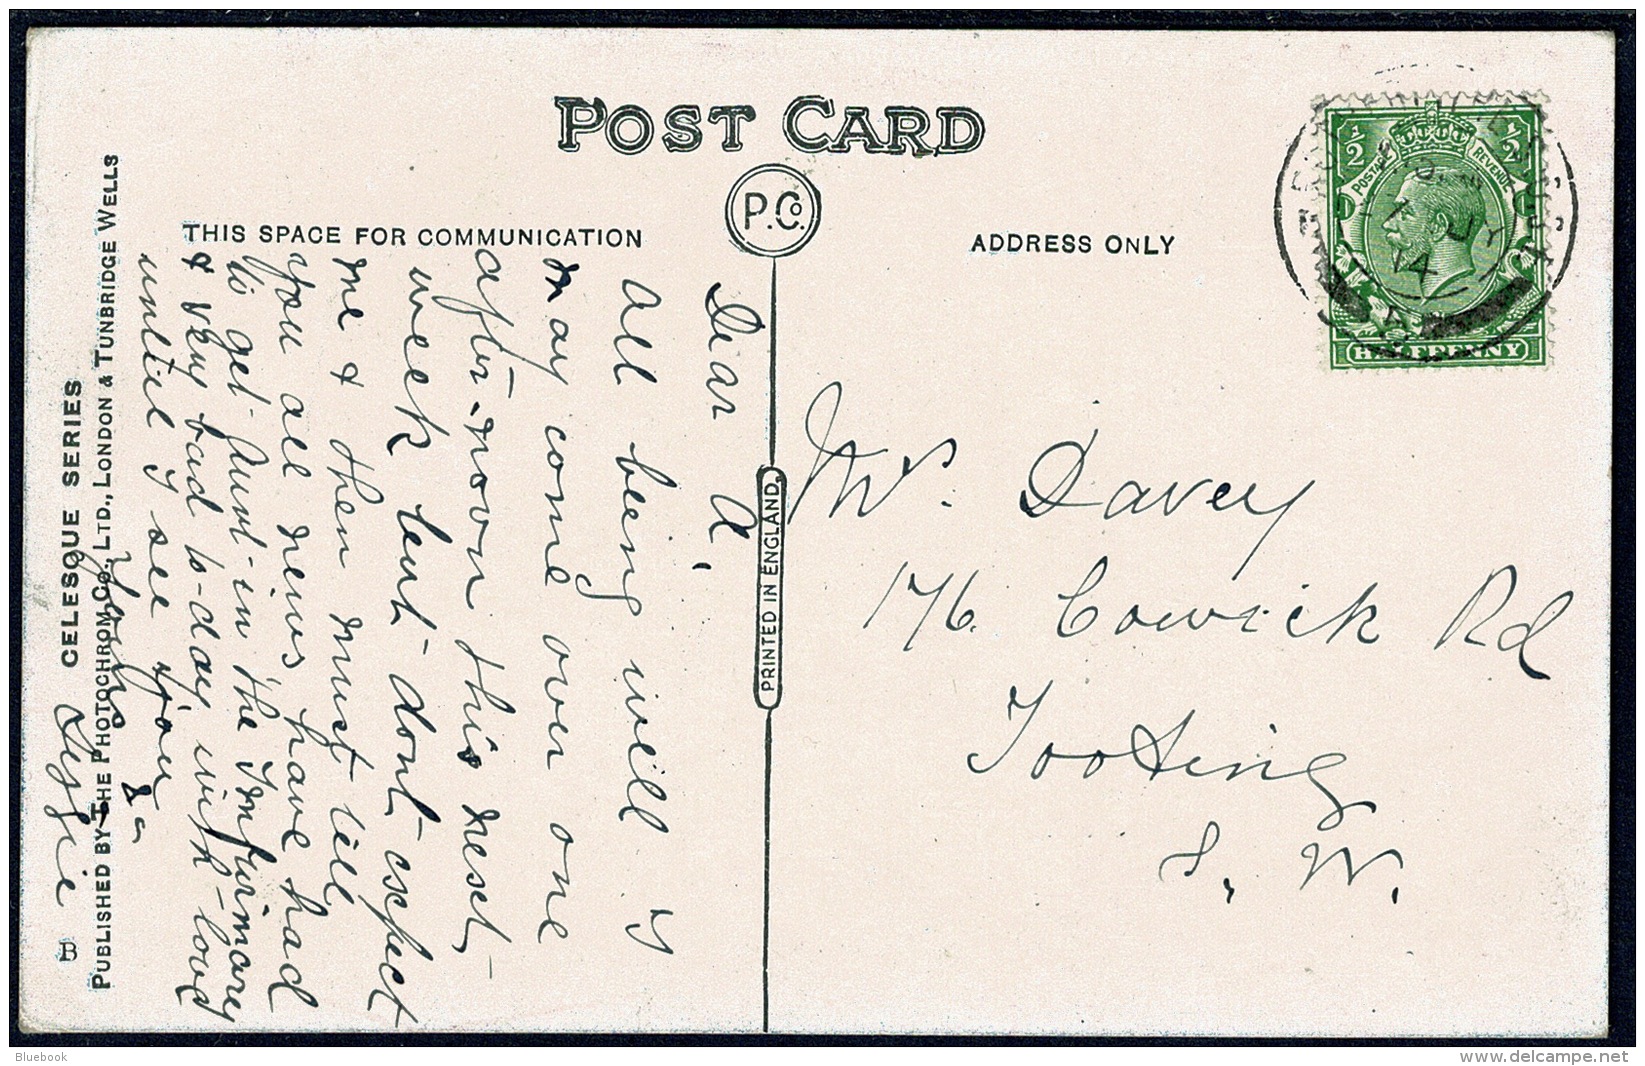 POST CARD
P. Co.
THIS SPACE FOR COMMUNICATION
ADDRESS ONLY
Dear A,
All being will I
may come over one
after-noon this next
week but dont expect
me & then must till
you all news have had
to get Aunt in the Infurimarey
& very bad to-day with love
until I see you
Yours
Lizzie
PRINTED IN ENGLAND.
CELESQUE SERIES
PUBLISHED BY THE PHOTOCHROM CO., LTD., LONDON & TUNBRIDGE WELLS
B
½ ½
POSTAGE REVENUE
7 JY
14
HALFPENNY
Mrs. Davey
176. Cowick Rd
Tooting
S. W.
Bluebook
www.delcampe.net